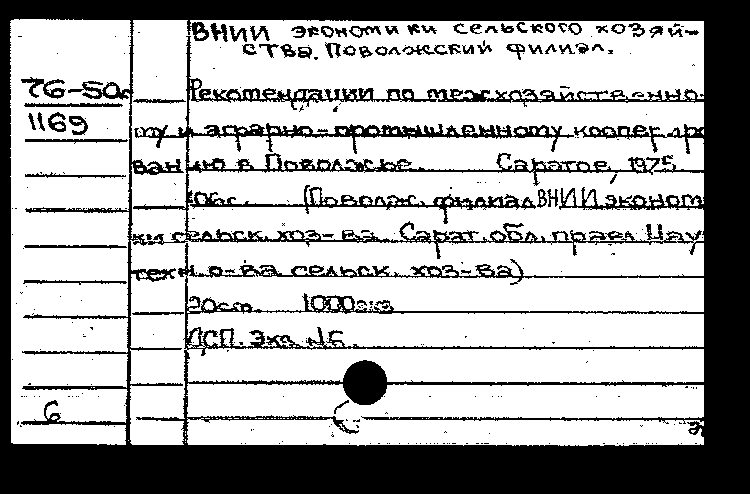 ВНИИ экономики сельского хозяй-
ства. Поволжский филиал.
76-50
Рекомендации по межхозяйственно-
1169
му и аграрно-промышленному коопериро
ванию в Поволжье. Саратов, 1975
106с. (Поволж. филиал ВНИИ эконом
ки сельск. хоз-ва. Сарат. обл. правл Нау
техн. о-ва сельск. хоз-ва)
20см. 1000экз
ДСП. Экз №5.
6